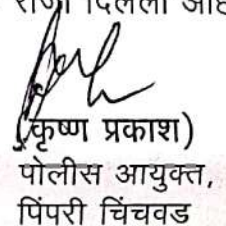 दिलेली
(कृष्ण प्रकाश)
पोलीस आयुक्त,
पिंपरी चिंचवड